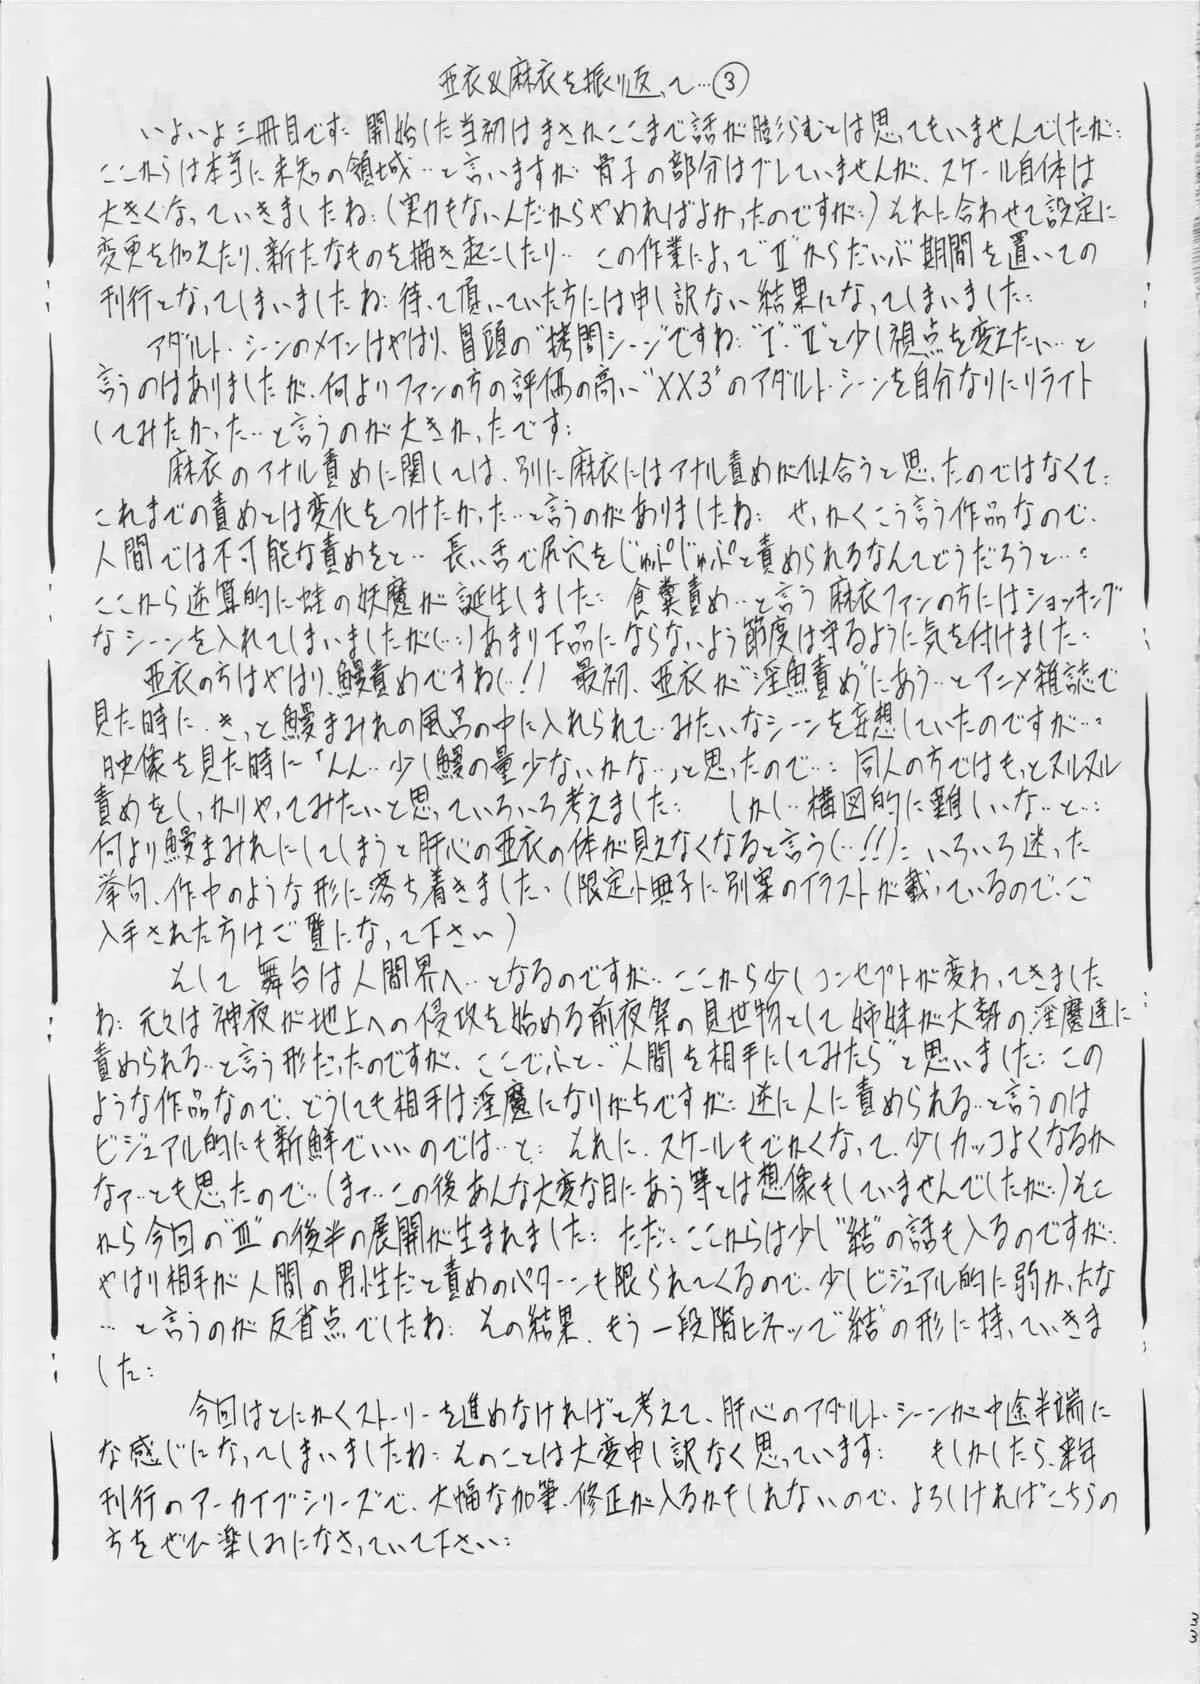 亜衣&麻衣を振り返って…③
いよいよ三冊目です… 開始した当初はまさかここまで話が膨らむとは思ってもいませんでしたが…
ここからは本当に未知の領域…と言いますが 骨子の部分はブレていませんが、スケール自体は
大きくなっていきましたね…(実力もない人だからやめればよかったのですが…)それに合わせて設定に
変更を加えたり、新たなものを描き起こしたり… この作業によって"Ⅱ"からだいぶ期間を置いての
刊行となってしまいましたね… 待って頂いていた方には申し訳ない結果になってしまいました…
アダルト・シーンのメインはやはり、冒頭の"拷問シーン"ですね… "Ⅰ"・"Ⅱ"と少し視点を変えたい…と
言うのはありましたが、何よりファンの方の評価の高い"XX3"のアダルト・シーンを自分なりにリライト
してみたかった…と言うのが大きかったです…
麻衣のアナル責めに関しては、別に麻衣にはアナル責めが似合うと思ったのではなくて…
これまでの責めとは変化をつけたかった…と言うのがありましたね… せっかくこう言う作品なので、
人間では不可能な責めをと… 長い舌で尻穴をじゅぷじゅぷと責められるなんてどうだろうと…。
ここから逆算的に蛙の妖魔が誕生しました… 食糞責め…と言う麻衣ファンの方にはショッキング
なシーンを入れてしまいましたが(…)あまり下品にならないよう節度は守るように気を付けました…
亜衣の方はやはり、鰻責めですね(…!) 最初、亜衣が"淫魚責め"にあう…とアニメ雑誌で
見た時に、きっと鰻まみれの風呂の中に入れられて…みたいなシーンを妄想していたのですが…。
映像を見た時に「んん…少し鰻の量少ないかな…」と思ったので…… 同人の方ではもっとヌルヌル
責めをしっかりやってみたいと思っていろいろ考えました… しかし…構図的に難しいな…と…
何より鰻まみれにしてしまうと肝心の亜衣の体が見えなくなると言う(…!!)… いろいろ迷った
挙句、作中のような形に落ち着きました、(限定小冊子に別案のイラストが載っているので、ご
入手された方はご覧になって下さい)
そして 舞台は人間界へ…となるのですが… ここから少しコンセプトが変わってきました
ね… 元々は神夜が地上への侵攻を始める前夜祭の見世物として姉妹が大勢の淫魔達に
責められる…と言う形だったのですが、ここでふと、"人間を相手にしてみたら"と思いました… この
ような作品なので、どうしても相手は淫魔になりがちですが… 逆に人に責められる…と言うのは
ビジュアル的にも新鮮でいいのでは…と… それに、スケールもでかくなって、少しカッコよくなるか
なァ…とも思ったので…(まァ…この後あんな大変な目にあう等とは想像もしていませんでしたが…)そこ
から今回の"Ⅲ"の後半の展開が生まれました… ただ… ここからは少し"結"の話も入るのですが…
やはり相手が人間の男性だと責めのパターンも限られてくるので、少しビジュアル的に弱かったな
…と言うのが反省点でしたね… その結果、もう一段階ヒネッて"結"の形に持っていきま
した…
今回はとにかくストーリーを進めなければと考えて、肝心のアダルト・シーンが中途半端に
な感じになってしまいましたね… そのことは大変申し訳なく思っています… もしかしたら、来年
刊行のアーカイブシリーズで、大幅な加筆、修正が入るかもしれないので、よろしければこちらの
方をぜひ楽しみになさっていて下さい…
33